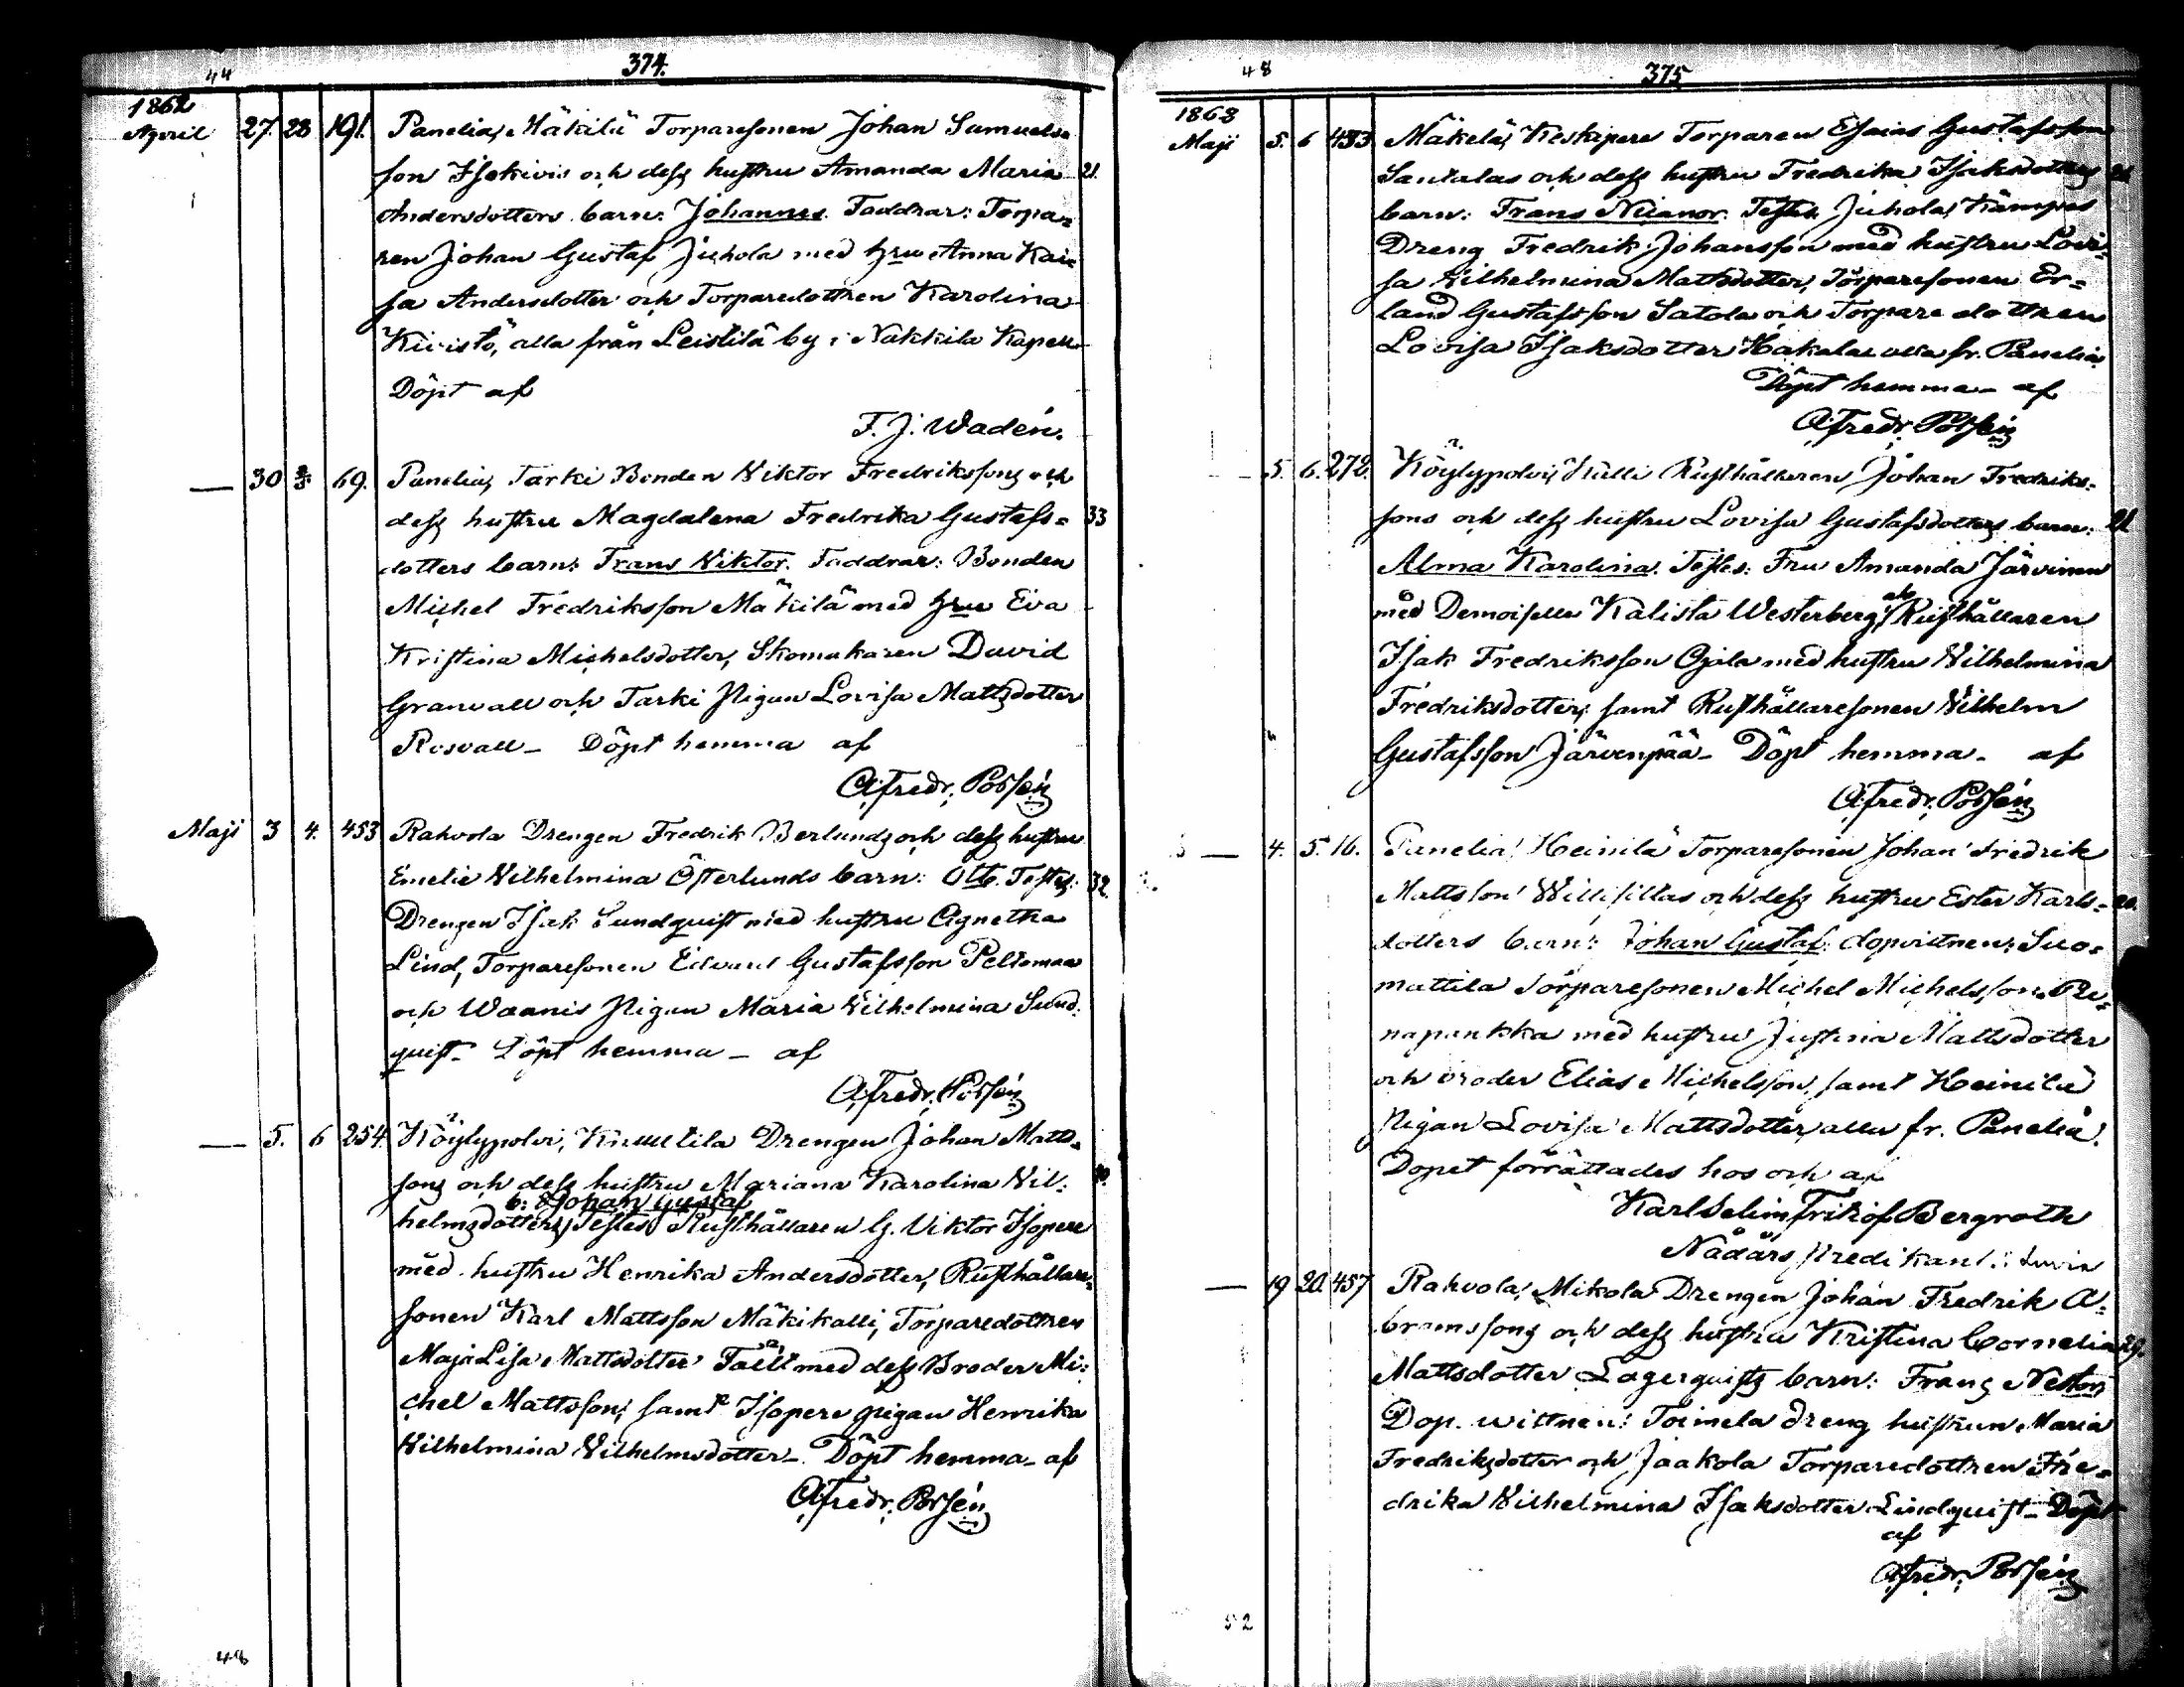 44
374.
1862
April 27. 28 191. Panelia, Mäkilä Torparesonen Johan Samuels-
son Isokivis och dess hustru Amanda Maria 21.
Andersdotters barn: Johannes. Faddrar: Torpa-
ren Johan Gustaf Juhola med hru Anna Kai-
sa Andersdotter och Torparedottren Karolina
Kivistö, alla från Leistilä by i Nakkila Kapell
Döpt af
F. J. Wadén.
— 30 69. Panelia, Tarki Bonden Viktor Fredrikssons och
dess hustru Magdalena Fredrika Gustafs- 33
dotters barn: Frans Viktor. Faddrar: Bonden
Michel Fredriksson Mäkilä med hru Eva
Kristina Michelsdotter, Skomakaren David
Granvall och Tarki Pigan Lovisa Mattsdotter
Rosvall – Döpt hemma af
Alfredr. Porsén
Maji 3 4. 453 Rahvola Drengen Fredrik Berlunds och dess hustru
Emelie Vilhelmina Österlunds barn: Otto. Testes: 32.
Drengen Isak Sundquist med hustru Agnetha
Lind, Torparesonen Edvard Gustafsson Peltomaa
och Waanis Pigan Maria Vilhelmina Sund-
quist – Döpt hemma – af
Alfredr. Porsén
— 5. 6 254. Köylypolvi, Knuutila Drengen Johan Matts-
sons och dess hustru Mariana Karolina Vil-
b: Johan Gustaf
helmsdotters, Testes Rusthållaren G. Viktor Isopere
med hustru Henrika Andersdotter, Rusthållare-
sonen Karl Mattsson Mäkikalli, Torparedottren
Maja Lisa Mattsdotter med dess Broder Mi-
chel Mattsson, samt Isopere pigan Henrika
Vilhelmina Vilhelmsdotter – Döpt hemma – af
Alfredr. Porsén
48
48
375
1862
Maji 5. 6 433 Mäkelä, Keskipere Torparen Esaias Gustafsson
Santalas och dess hustru Fredrika Isaksdotters
barn: Frans Nicanor. Testes. Juhola, Kämpes
Dreng Fredrik Johansson med hustru Lovi-
sa Vilhelmina Mattsdotter, Torparesonen Er-
land Gustafsson Satola och Torpare dottren
Lovisa Isaksdotter Hakala alla fr. Panelia.
Döpt hemma – af
Alfredr. Porsén
— 5. 6. 272. Köylypolvi, Kulli Rusthållaren Johan Fredriks-
sons och dess hustru Lovisa Gustafsdotters barn: 21
Alma Karolina. Testes: Fru Amanda Järvinen
med Demoiselle Kalista Westerberg, Rusthållaren
Isak Fredriksson Ojala med hustru Vilhelmina
Fredriksdotter, samt Rusthållaresonen Vilhelm
Gustafsson Järvenpää – Döpt hemma – af
Alfredr. Porsén
— 4. 5. 16. Panelia, Heinilä Torparesonen Johan Fredrik
Mattsson Villisillas och dess hustru Ester Karls- 20.
dotters barn: Johan Gustaf: dopvittnen: Suo-
mattila Torparesonen Michel Michelsson
med hustru Justina Mattsdotter
och broder Elias Michelsson, samt Heinilä
Pigan Lovisa Mattsdotter, alla fr. Panelia.
Dopet förrättades hos och af
Karl Selim Fritiof Bergroth
Nådårs predikant i Luvia
— 19 20. 457 Rahvola, Mikola Drengen Johan Fredrik A-
bramssons och dess hustru Kristina Cornelia 29.
Mattsdotter Lagerquists barn: Frans Nestor
Dop. wittnen: Toimela dreng hustrun Maria
Fredriksdotter och Jaakola Torparedottren Fre-
drika Vilhelmina Isaksdotter Lindquist – Döpt
af
Alfredr. Porsén
52